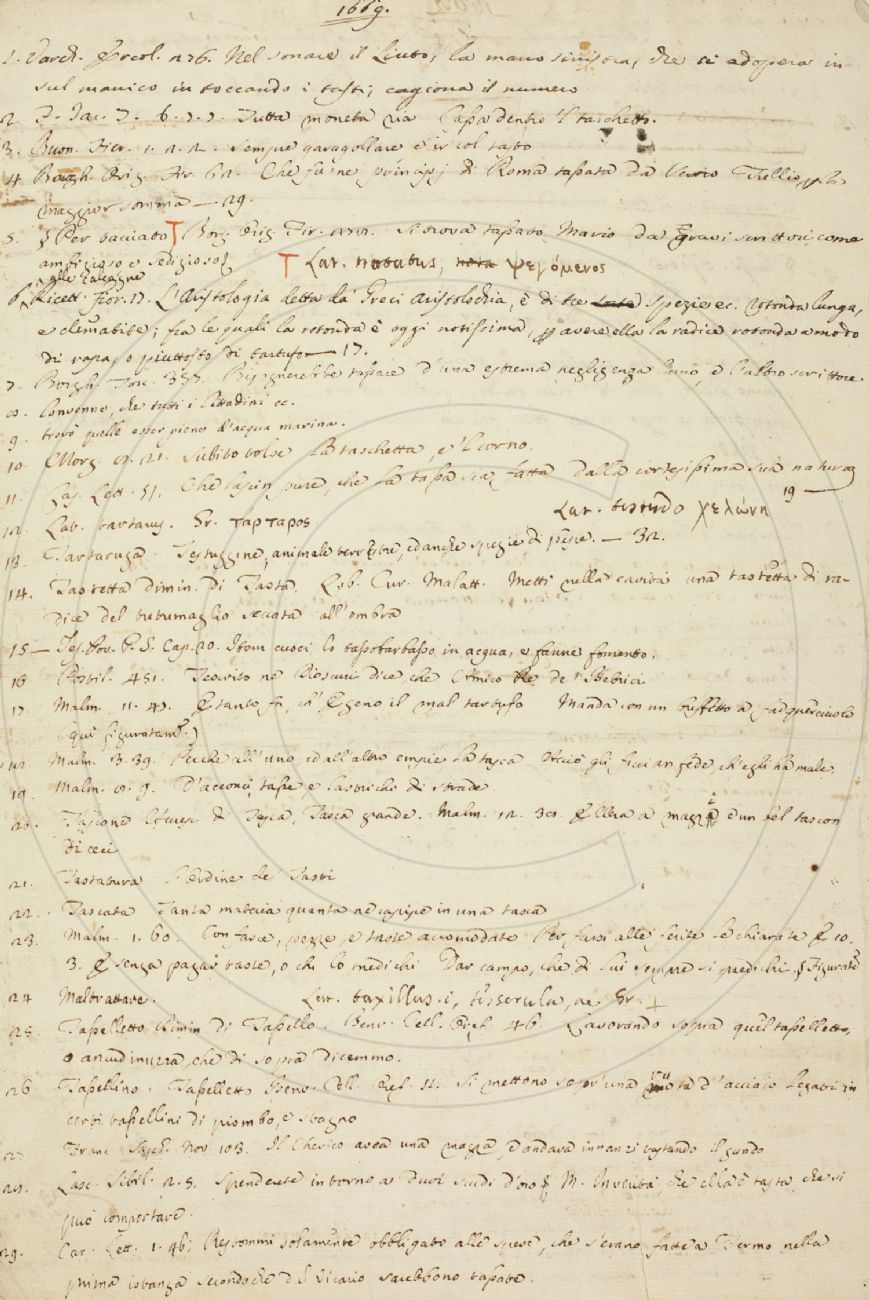 1669.
1. Varch. Ercol. 276. Nel sonare il Liuto, la mano sinistra, che si adopera in
sul manico in toccando i tasti, cagiona il numero
2. F. Jac. T. 6. Tutta moneta via Passa dentro 'l taschetto.
3. Buon. Fier. 1. 2. 2. Sempre garagollare e ir col tasto
4. Borgh. Orig. Fir. 62. Che fu ne' principj di Roma tassata da Servio Tullio
maggior somma — 29.
5. § Per tacciato T Borg. Orig. Fir. Si trova tassato Mario da gravi scrittori, come
ambizioso e sedizioso
T Lat. notatus, nota ψεγόμενος
6. alle Calcagne
Ricett. Fior. 17. L'Aristologia detta da' Greci Aristolochia, è di tre spezie ec. rotonda lunga,
e clematite; fra le quali la rotonda è oggi notissima, avere ella la radice rotonda a modo
di rapa, o piuttosto di tartufo — 17.
7. Borgh. Tosc. 355. Bisognerebbe tassare d'una estrema negligenza l'uno, e l'altro scrittore
8. Convenne, che tutti i Cittadini ec.
9. trovò quelle esser pieno d'acqua marina.
10. Morg. 21. Subito tolse la taschetta, e 'l corno.
11. Cas. Lett. 51. Che lascin pure, che la tassa sia fatta dalla cortesissima sua natura
19 —
12. Lat. tartarus. Gr. ταρταρος.
Lat. testudo χελώνη
13. Tartaruga. Testuggine, animale terrestre, ed anche spezie di pesce. — 32.
14. Tastetta dimin. di Tasta. Lib. Cur. Malatt. Metti nella cavità una tastetta di ra-
dice del titumaglio seccata all'ombra
15 — Tes. Pov. P. S. Cap. 20. Item cuoci lo tassobarbasso in acqua, e fanne fomento.
16 Postil. 451. Teocrito ne' Dioscuri dice che Amico Re de' Bebrici
17. Malm. 11. 47. E tanto fa, ch' E' geno il mal tartufo Manda con un buffetto a far querciuolo
(qui figuratam.)
18. Malm. 3. 39. Perchè all'uno, ed all'altro empie la tasca Acciò gli faccian fede ch'egli ha male
19. Malm. 9. D'acconci, tasse, e lastrichi di strade
20. Tascone Accresc. di Tasca, Tasca grande. Malm. 12. 38. E llera a mazzi e un bel tascon
di ceci
21. Tastatura L'Ordine de' Tasti
22. Tascata Tanta materia quanta ne cape in una tasca
23. Malm. 1. 60. Con fasce, pezze, e taste accomodate Per farsi alle ferite le chiarate E 10.
3. E senza pagar taste, o chi lo medichi Dar campo, che di lui sempre si predichi. § Figurate
24 Maltrattare. Lat. taxillus. i, tesserula, ae Gr. +
25. Tasselletto Dimin di Tassello. Benv. Cell. Oref. 46 Lavorando sopra quel tasselletto,
o ancudinuzza, che di sopra dicemmo.
26 Tassellino. Tasselletto Benv. Cell. Oref. 11. Si mettono sopr'una ruota d'acciaio legati in
certi tassellini di piombo, e stagno
27 Franc. Sacch. Nov 103. Il Cherico avea una mazza, e andava innanzi tastando il guado
28. Lasc. Sibil. 2. 5. Spenderete intorno a duoi scudi d'oro M. Inventa che ella è tasta, che si
può comportare.
29. Car. Lett. 1. 46. Restommi solamente obbligato alle spese, che s'erano fatte a Fermo nella
prima istanza secondo che dal Vicario sarebbono tassate.